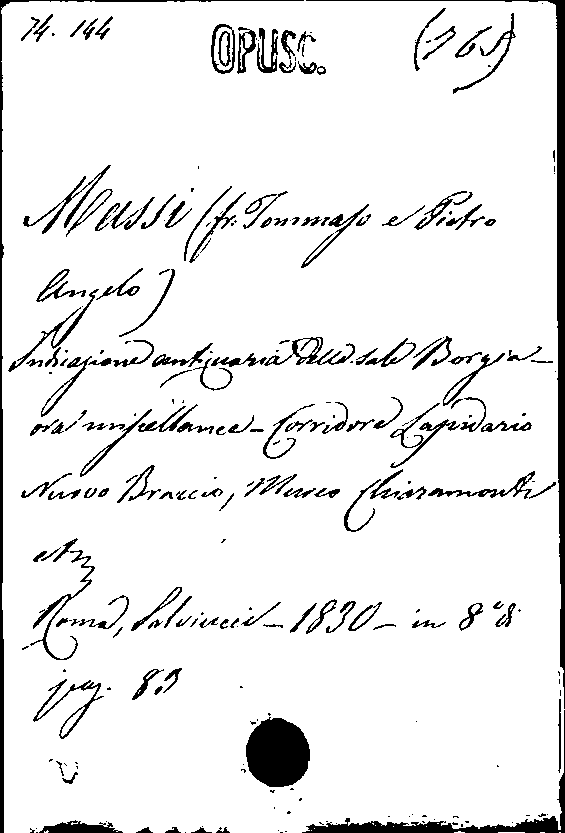 74. 144 OPUSC. (765)
Massi (fr. Tommaso e Pietro
Angelo)
Indicazione antiquaria delle sale Borgia -
ora miscellanee - Corridore Lapidario
Nuovo Braccio, Museo Chiaramonti
etc
Roma, Salviucci - 1830 - in 8° di
pag. 83